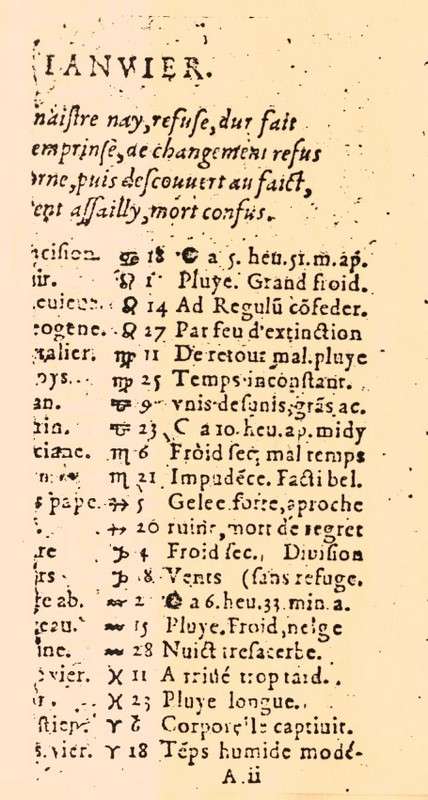 IANVIER.
naiſtre nay, refuſe, dur fait
emprinſe, de changement refus
orne, puis deſcouuert au faict,
ent aſſailly, mort confus.
ciſion. ♋ 18 a 5. heu. 51. m. ap.
♌ 1 Pluye. Grand froid.
♌ 14 Ad Regulū cōfeder.
eogene. ♌ 27 Par feu d'extinction
talier. ♍ 11 De retour mal. pluye
oys. ♍ 25 Temps inconſtant.
an. ♎ 9 vnis deſunis, grās ac.
tin. ♎ 23 ☾ a 10. heu. ap. midy
ciane. ♏ 6 Froid ſec, mal temps
♏ 21 Impudēce. Facti bel.
s pape. ♐ 5 Gelee forte, aproche
♐ 20 ruine, mort de regret
re ♑ 4 Froid ſec. Diuiſion
rs ♑ 18 Vents (ſans refuge.
ſe ab. ♒ 2 a 6. heu. 33. min. a.
eau. ♒ 15 Pluye. Froid, neige
ine. ♒ 28 Nuict
vier. ♓ 11 A trop tard.
r. ♓ 23 Pluye longue.
ſtien. ♈ 6 captiuit.
s. vier. ♈ 18 Tēps humide modé-
A. ii